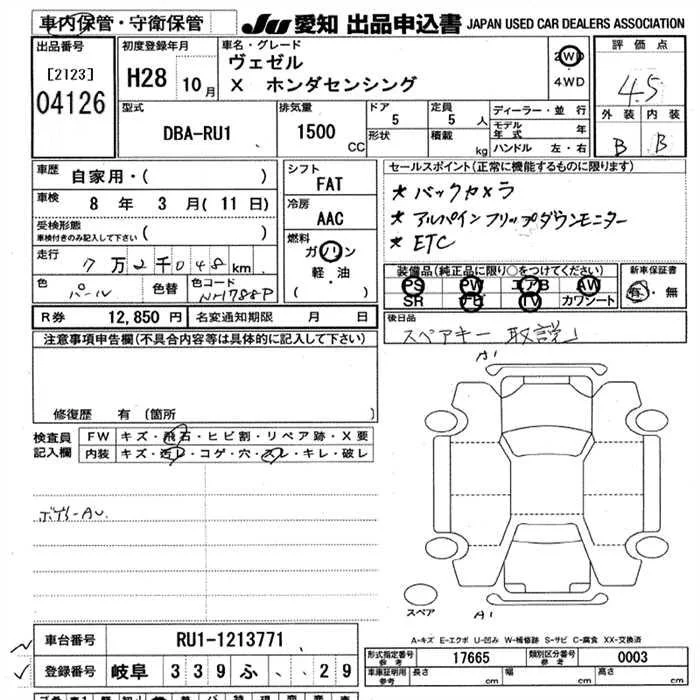 車内保管・守衛保管
JU 愛知 出品申込書 JAPAN USED CAR DEALERS ASSOCIATION
出品番号
[2123]
04126
初度登録年月
H28 10月
車名・グレード
ヴェゼル
X ホンダセンシング
2WD
4WD
評価点
4.5
外装 内装
B B
型式
DBA-RU1
排気量
1500
CC
ドア
5
形状
定員
5 人
積載
kg
ディーラー・並行
モデル年式 年
ハンドル 左・右
車歴
自家用・( )
車検
8 年 3 月( 11 日)
受検形態
車検付きのみ記入して下さい ( )
走行
7万2千048km
色
パール
色替
色コード
NH788P
シフト
FAT
冷房
AAC
燃料
ガソリン
軽・油
( )
セールスポイント(正常に機能するものに限ります)
★ バックカメラ
★ アルパインフリップダウンモニター
★ ETC
装備品(純正品に限り○をつけてください)
PS PW エアB AW
SR ナビ TV カワシート
新車保証書
有・無
R券 12,850 円 名変通知期限 月 日
後日品
スペアキー 取説
注意事項申告欄(不具合内容等は具体的に記入して下さい)
修復歴 有 〔箇所 〕
検査員
記入欄
FW キズ・飛石・ヒビ割・リペア跡・X要
内装 キズ・汚レ・コゲ・穴・スレ・キレ・破レ
A1
A1
スペア
A-キズ E-エクボ U-凹み W-補修跡 S-サビ C-腐食 XX-交換済
車台番号 RU1-1213771
登録番号 岐阜 339 ふ ・・29
形式指定番号
参考
17665
類別区分番号
参考
0003
車庫証明用
参考
長さ cm 幅 cm 高さ cm